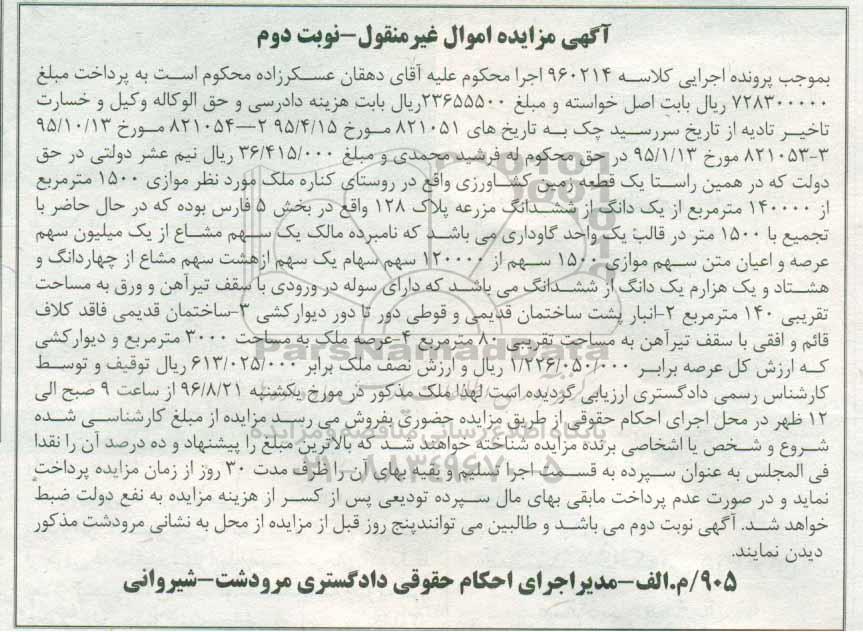 آگهی مزایده اموال غیرمنقول-نوبت دوم
بموجب پرونده اجرایی کلاسه ۹۶۰۲۱۴ اجرا محکوم علیه آقای دهقان عسکرزاده محکوم است به پرداخت مبلغ
۷۲۸۳۰۰۰۰۰ ریال بابت اصل خواسته و مبلغ ۲۳۶۵۵۵۰۰ریال بابت هزینه دادرسی و حق الوکاله وکیل و خسارت
تاخیر تادیه از تاریخ سررسید چک به تاریخ های ۸۲۱۰۵۱ مورخ ۹۵/۴/۱۵ ۲-۸۲۱۰۵۴ مورخ ۹۵/۱۰/۱۳
۳-۸۲۱۰۵۳ مورخ ۹۵/۱/۱۳ در حق محکوم له فرشید محمدی و مبلغ ۳۶/۴۱۵/۰۰۰ ریال نیم عشر دولتی در حق
دولت که در همین راستا یک قطعه زمین کشاورزی واقع در روستای کناره ملک مورد نظر موازی ۱۵۰۰ مترمربع
از ۱۴۰۰۰۰ مترمربع از یک دانگ از ششدانگ مزرعه پلاک ۱۲۸ واقع در بخش ۵ فارس بوده که در حال حاضر با
تجمیع با ۱۵۰۰ متر در قالب یک واحد گاوداری می باشد که نامبرده مالک یک سهم مشاع از یک میلیون سهم
عرصه و اعیان متن سهم موازی ۱۵۰۰ سهم از ۱۲۰۰۰۰ سهم سهام یک سهم ازهشت سهم مشاع از چهاردانگ و
هشتاد و یک هزارم یک دانگ از ششدانگ می باشد که دارای سوله در ورودی با سقف تیرآهن و ورق به مساحت
تقریبی ۱۴۰ مترمربع ۲-انبار پشت ساختمان قدیمی و قوطی دور تا دور دیوارکشی ۳-ساختمان قدیمی فاقد کلاف
قائم و افقی با سقف تیرآهن به مساحت تقریبی ۸۰ مترمربع ۴-عرصه ملک به مساحت ۳۰۰۰ مترمربع و دیوارکشی
که ارزش کل عرصه برابر ۱/۲۲۶/۰۵۰/۰۰۰ ریال و ارزش نصف ملک برابر ۶۱۳/۰۲۵/۰۰۰ ریال توقیف و توسط
کارشناس رسمی دادگستری ارزیابی گردیده است لهذا ملک مذکور در مورخ یکشنبه ۹۶/۸/۲۱ از ساعت ۹ صبح الی
۱۲ ظهر در محل اجرای احکام حقوقی از طریق مزایده حضوری بفروش می رسد مزایده از مبلغ کارشناسی شده
شروع و شخص یا اشخاصی برنده مزایده شناخته خواهند شد که بالاترین مبلغ را پیشنهاد و ده درصد آن را نقدا
فی المجلس به عنوان سپرده به قسمت اجرا تسلیم و بقیه بهای آن را ظرف مدت ۳۰ روز از زمان مزایده پرداخت
نماید و در صورت عدم پرداخت مابقی بهای مال سپرده تودیعی پس از کسر از هزینه مزایده به نفع دولت ضبط
خواهد شد. آگهی نوبت دوم می باشد و طالبین می توانندپنج روز قبل از مزایده از محل به نشانی مرودشت مذکور
دیدن نمایند.
۹۰۵/م.الف-مدیراجرای احکام حقوقی دادگستری مرودشت-شیروانی
ParsNamadData
پایگاه اطلاع رسانی مناقصه و مزایده
۰۲۱-۸۸۳۴۹۶۷۰-۵